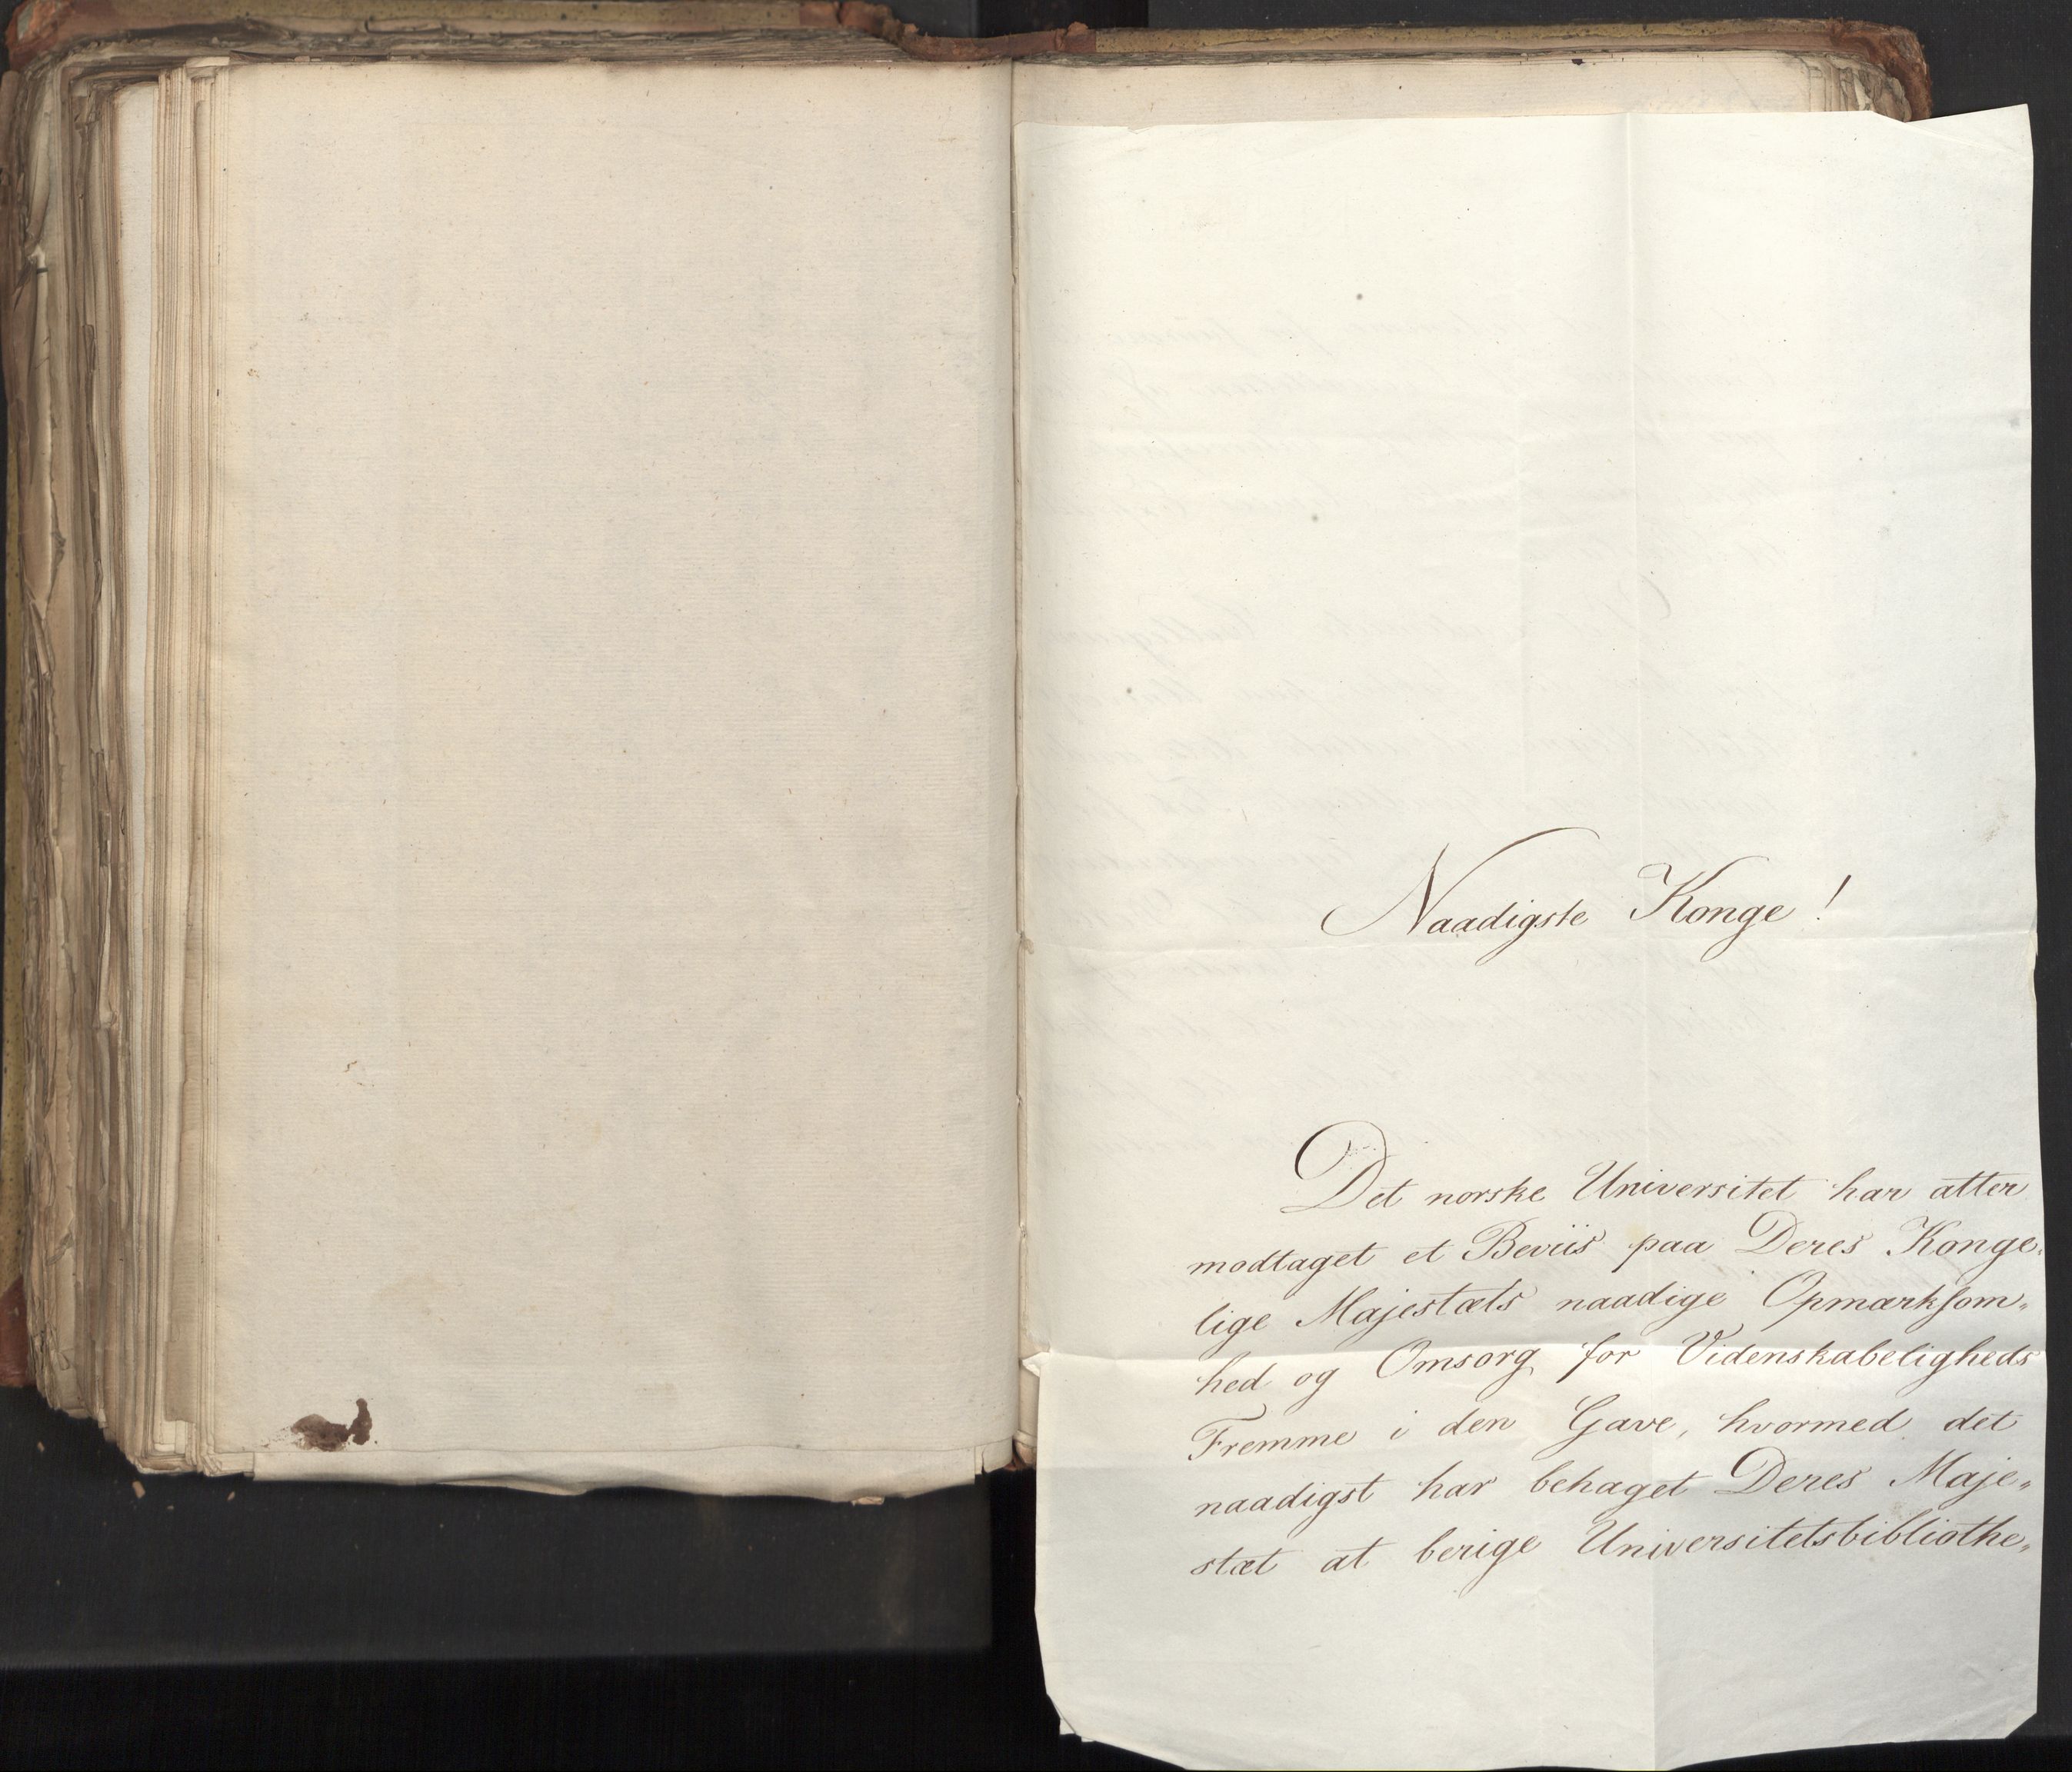 Naadigste Konge!
Det norske Universitet har atter
modtaget et Beviis paa Deres Konge-
lige Majestæts naadige Opmærksom-
hed og Omsorg for Videnskabeligheds
Fremme i den Gave, hvormed det
naadigst har behaget Deres Maje-
stæt at berige Universitetsbibliothe-